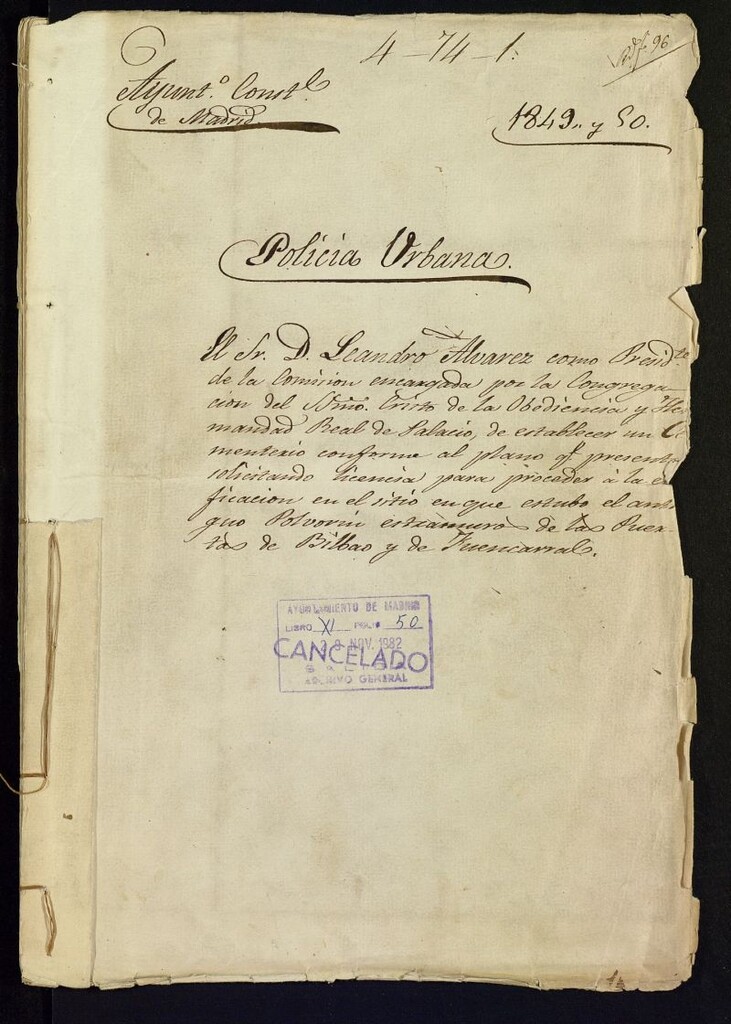 4-74-1.
Rdf. 96
Ayunt.º Const.l
de Madrid
1849,, y 50.
Policia Urbana.
El Sr. D. Leandro Alvarez como Presid.te
de la Comision encargada por la Congrega-
cion del SSmo. Cristo de la Obediencia y He
mandad Real de Palacio, de establecer un Ce
menterio conforme al plano q.e presenta
solicitando licencia para proceder á la e
ficacion en el sitio en que estubo el anti
guo Polvorin estramuros de las Puer-
tas de Bilbao y de Fuencarral.
AYUNTAMIENTO DE MADRID
LIBRO XI FOLIO 50
NOV. 1982
CANCELADO
SALIDA
ARCHIVO GENERAL